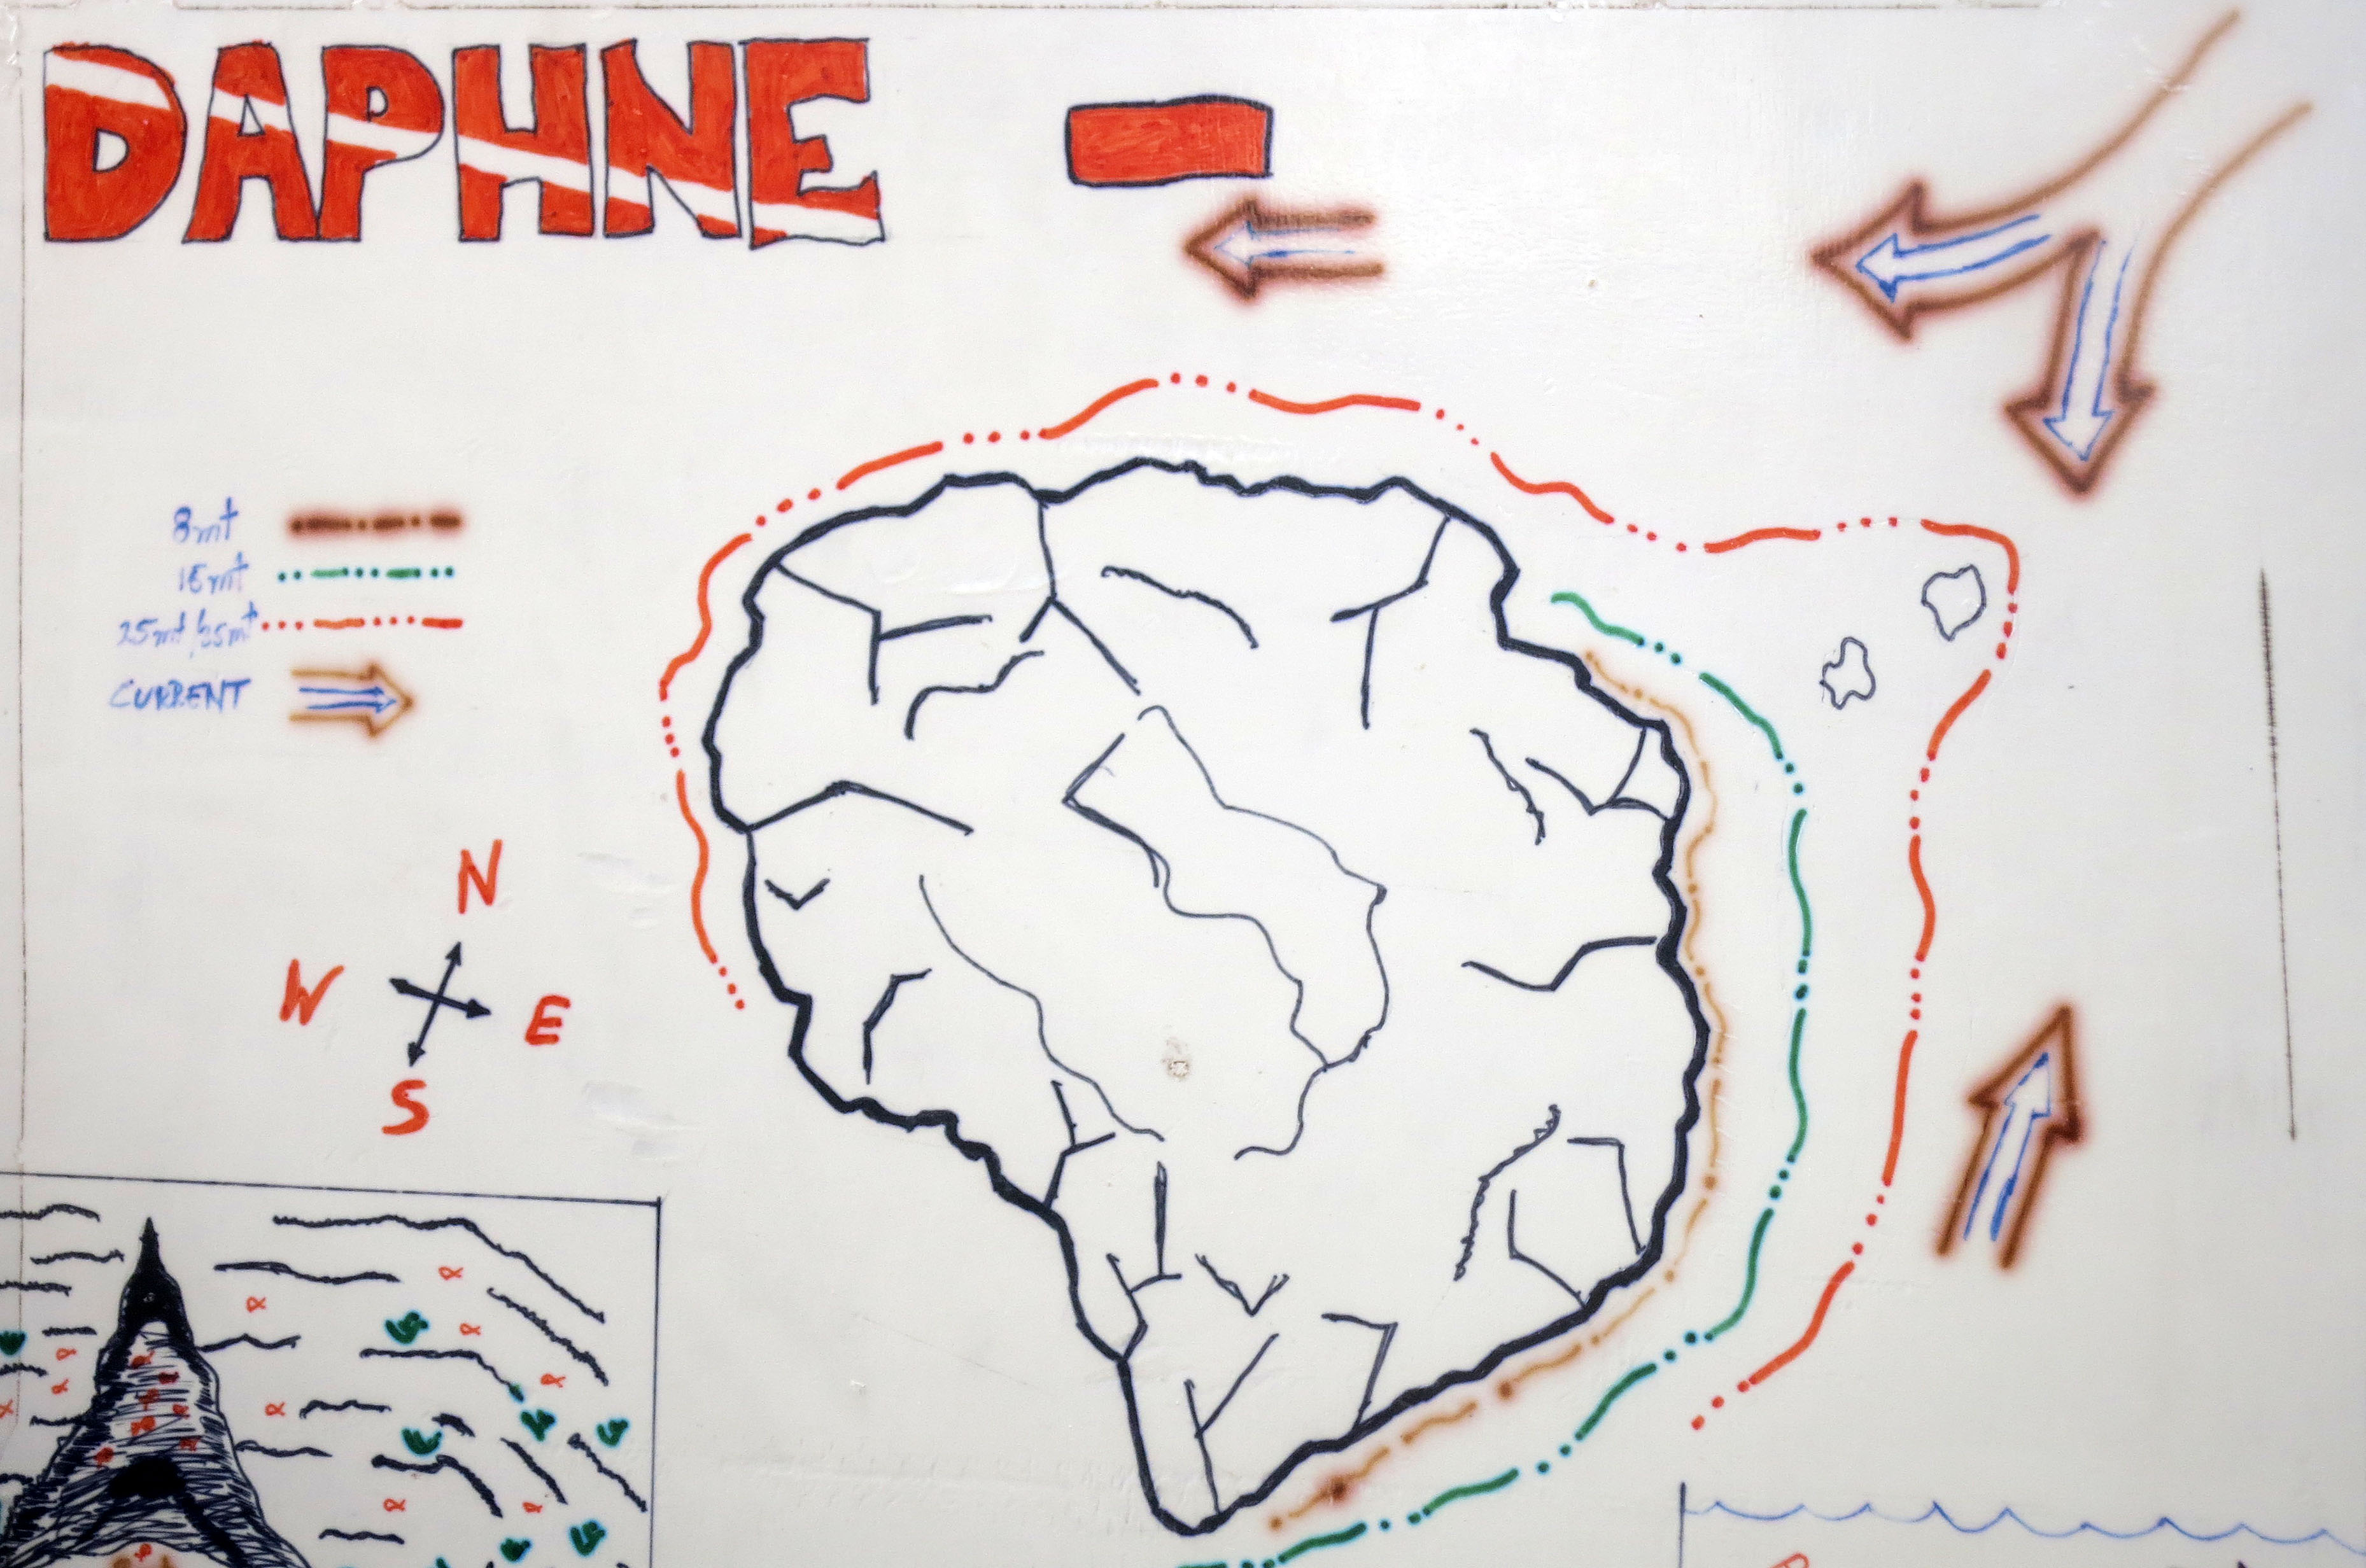 DAPHNE
8mt
15mt
25mt/35mt
CURRENT
N
W E
S